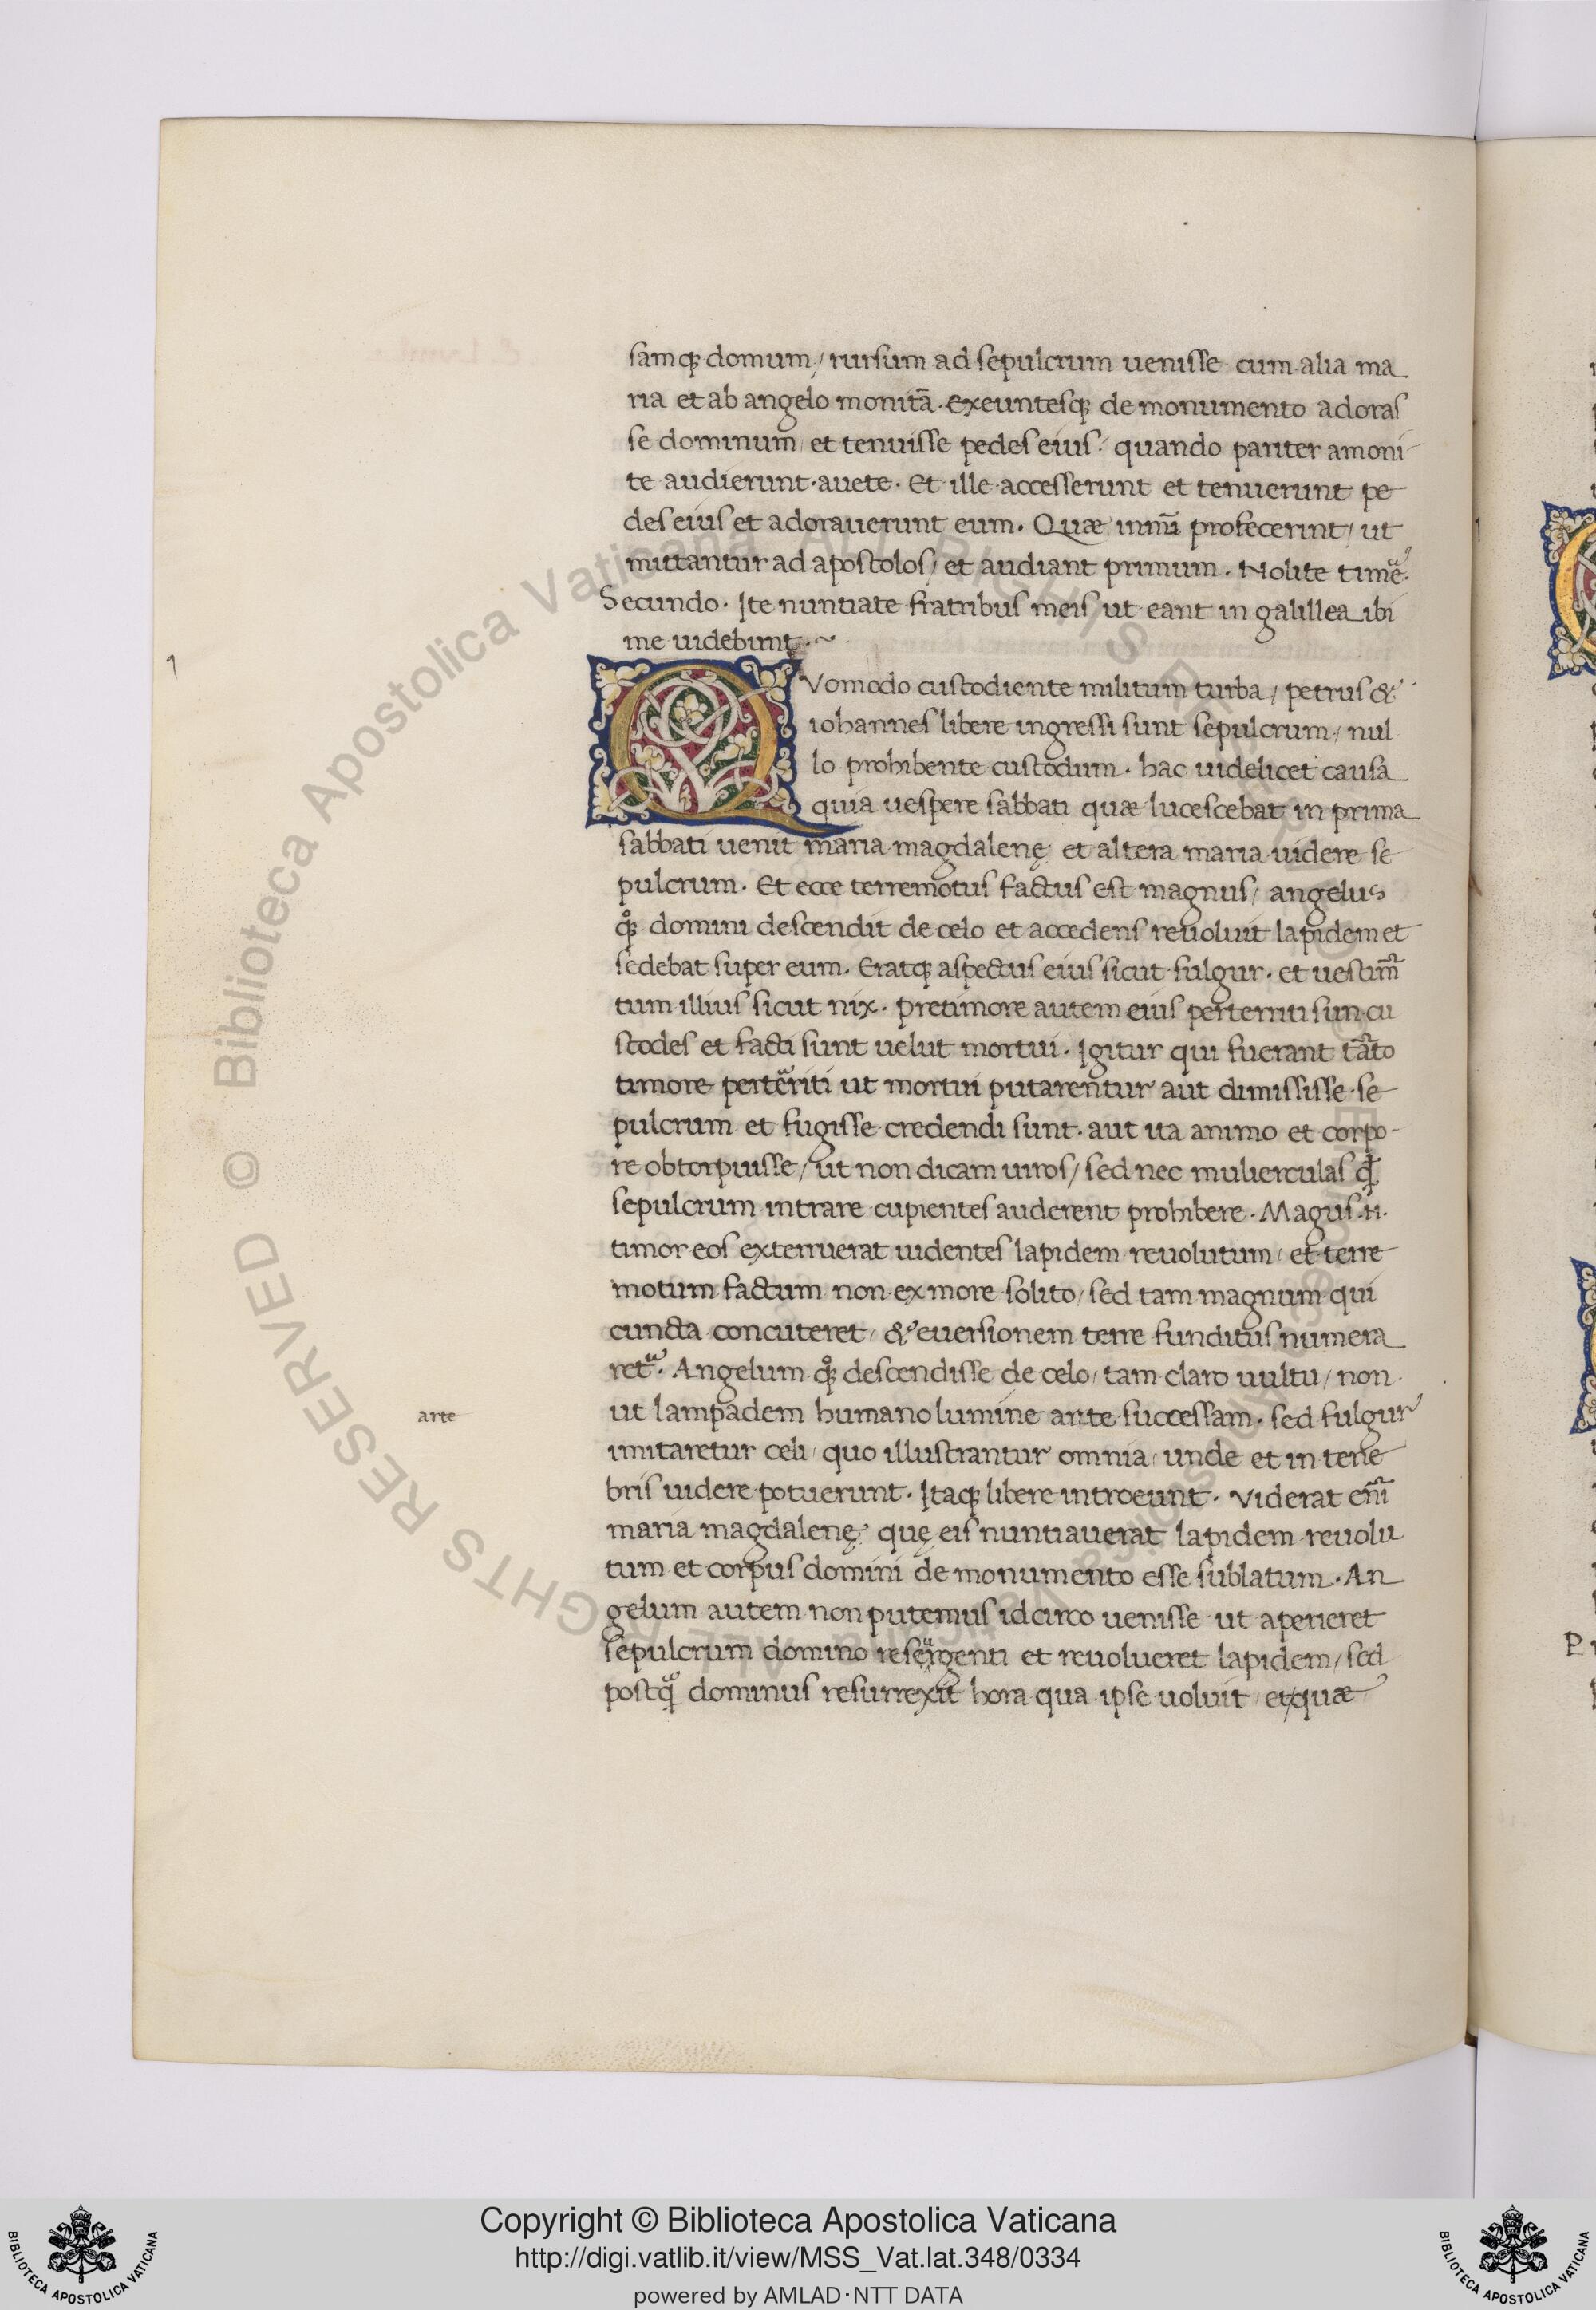 samq; domum / rursum ad sepulcrum uenisse cum alia ma
ria et ab angelo monitā. exeuntesq; de monumento adoras
se dominum et tenuisse pedes eius: quando pariter amoni
te audierunt. auete. Et ille accesserunt et tenuerunt pe
des eius et adorauerunt eum. Quæ profecerint / ut
mittantur ad apostolos / et audiant primum. Nolite time
Secundo. Ite nuntiate fratribus meis ut eant in galillea ibi
me uidebunt.~
QVomodo custodiente militum turba / petrus &
iohannes libere ingressi sunt sepulcrum / nul
lo prohibente custodum. hac uidelicet causa
quia uespere sabbati quæ lucescebat in prima
sabbati uenit maria magdalenę et altera maria uidere se
pulcrum. Et ecce terremotus factus est magnus / angelus
qͦ; domini descendit de celo et accedens reuoluit lapidem et
sedebat super eum. Eratq; aspectus eius sicut fulgur. et uestim̄
tum illius sicut nix. Pretimore autem eius perterriti sun cu
stodes et facti sunt uelut mortui. Igitur qui fuerant tāto
timore perteriti ut mortui putarentur aut dimississe se
pulcrum et fugisse credendi sunt. aut ita animo et corpo-
re obtorpuisse / ut non dicam uiros / sed nec mulierculas ꝗ
sepulcrum intrare cupientes auderent prohibere. Magus .n.
timor eos exterruerat uidentes lapidem reuolutum / et terre
motum factum non ex more solito / sed tam magnum qui
cuncta concuteret / & euersionem terre funditus numera
ret. Angelum qͦ; descendisse de celo / tam claro uultu / non
arte
ut lampadem humano lumine arte successam. sed fulgur
imitaretur celi / quo illustrantur omnia / unde et in tene
bris uidere potuerunt. Itaq; libere introeunt. Viderat eni
maria magdalenę quę eis nuntiauerat lapidem reuolu
tum et corpus domini de monumento esse sublatum. An
gelum autem non putemus idcirco uenisse ut aperieret
sepulcrum domino resergenti et reuolueret lapidem / sed
postq̄ dominus resurrexit hora qua ipse uoluit et quæ
Copyright © Biblioteca Apostolica Vaticana
http://digi.vatlib.it/view/MSS_Vat.lat.348/0334
powered by AMLAD·NTT DATA
BIBLIOTECA APOSTOLICA VATICANA
BIBLIOTECA APOSTOLICA VATICANA